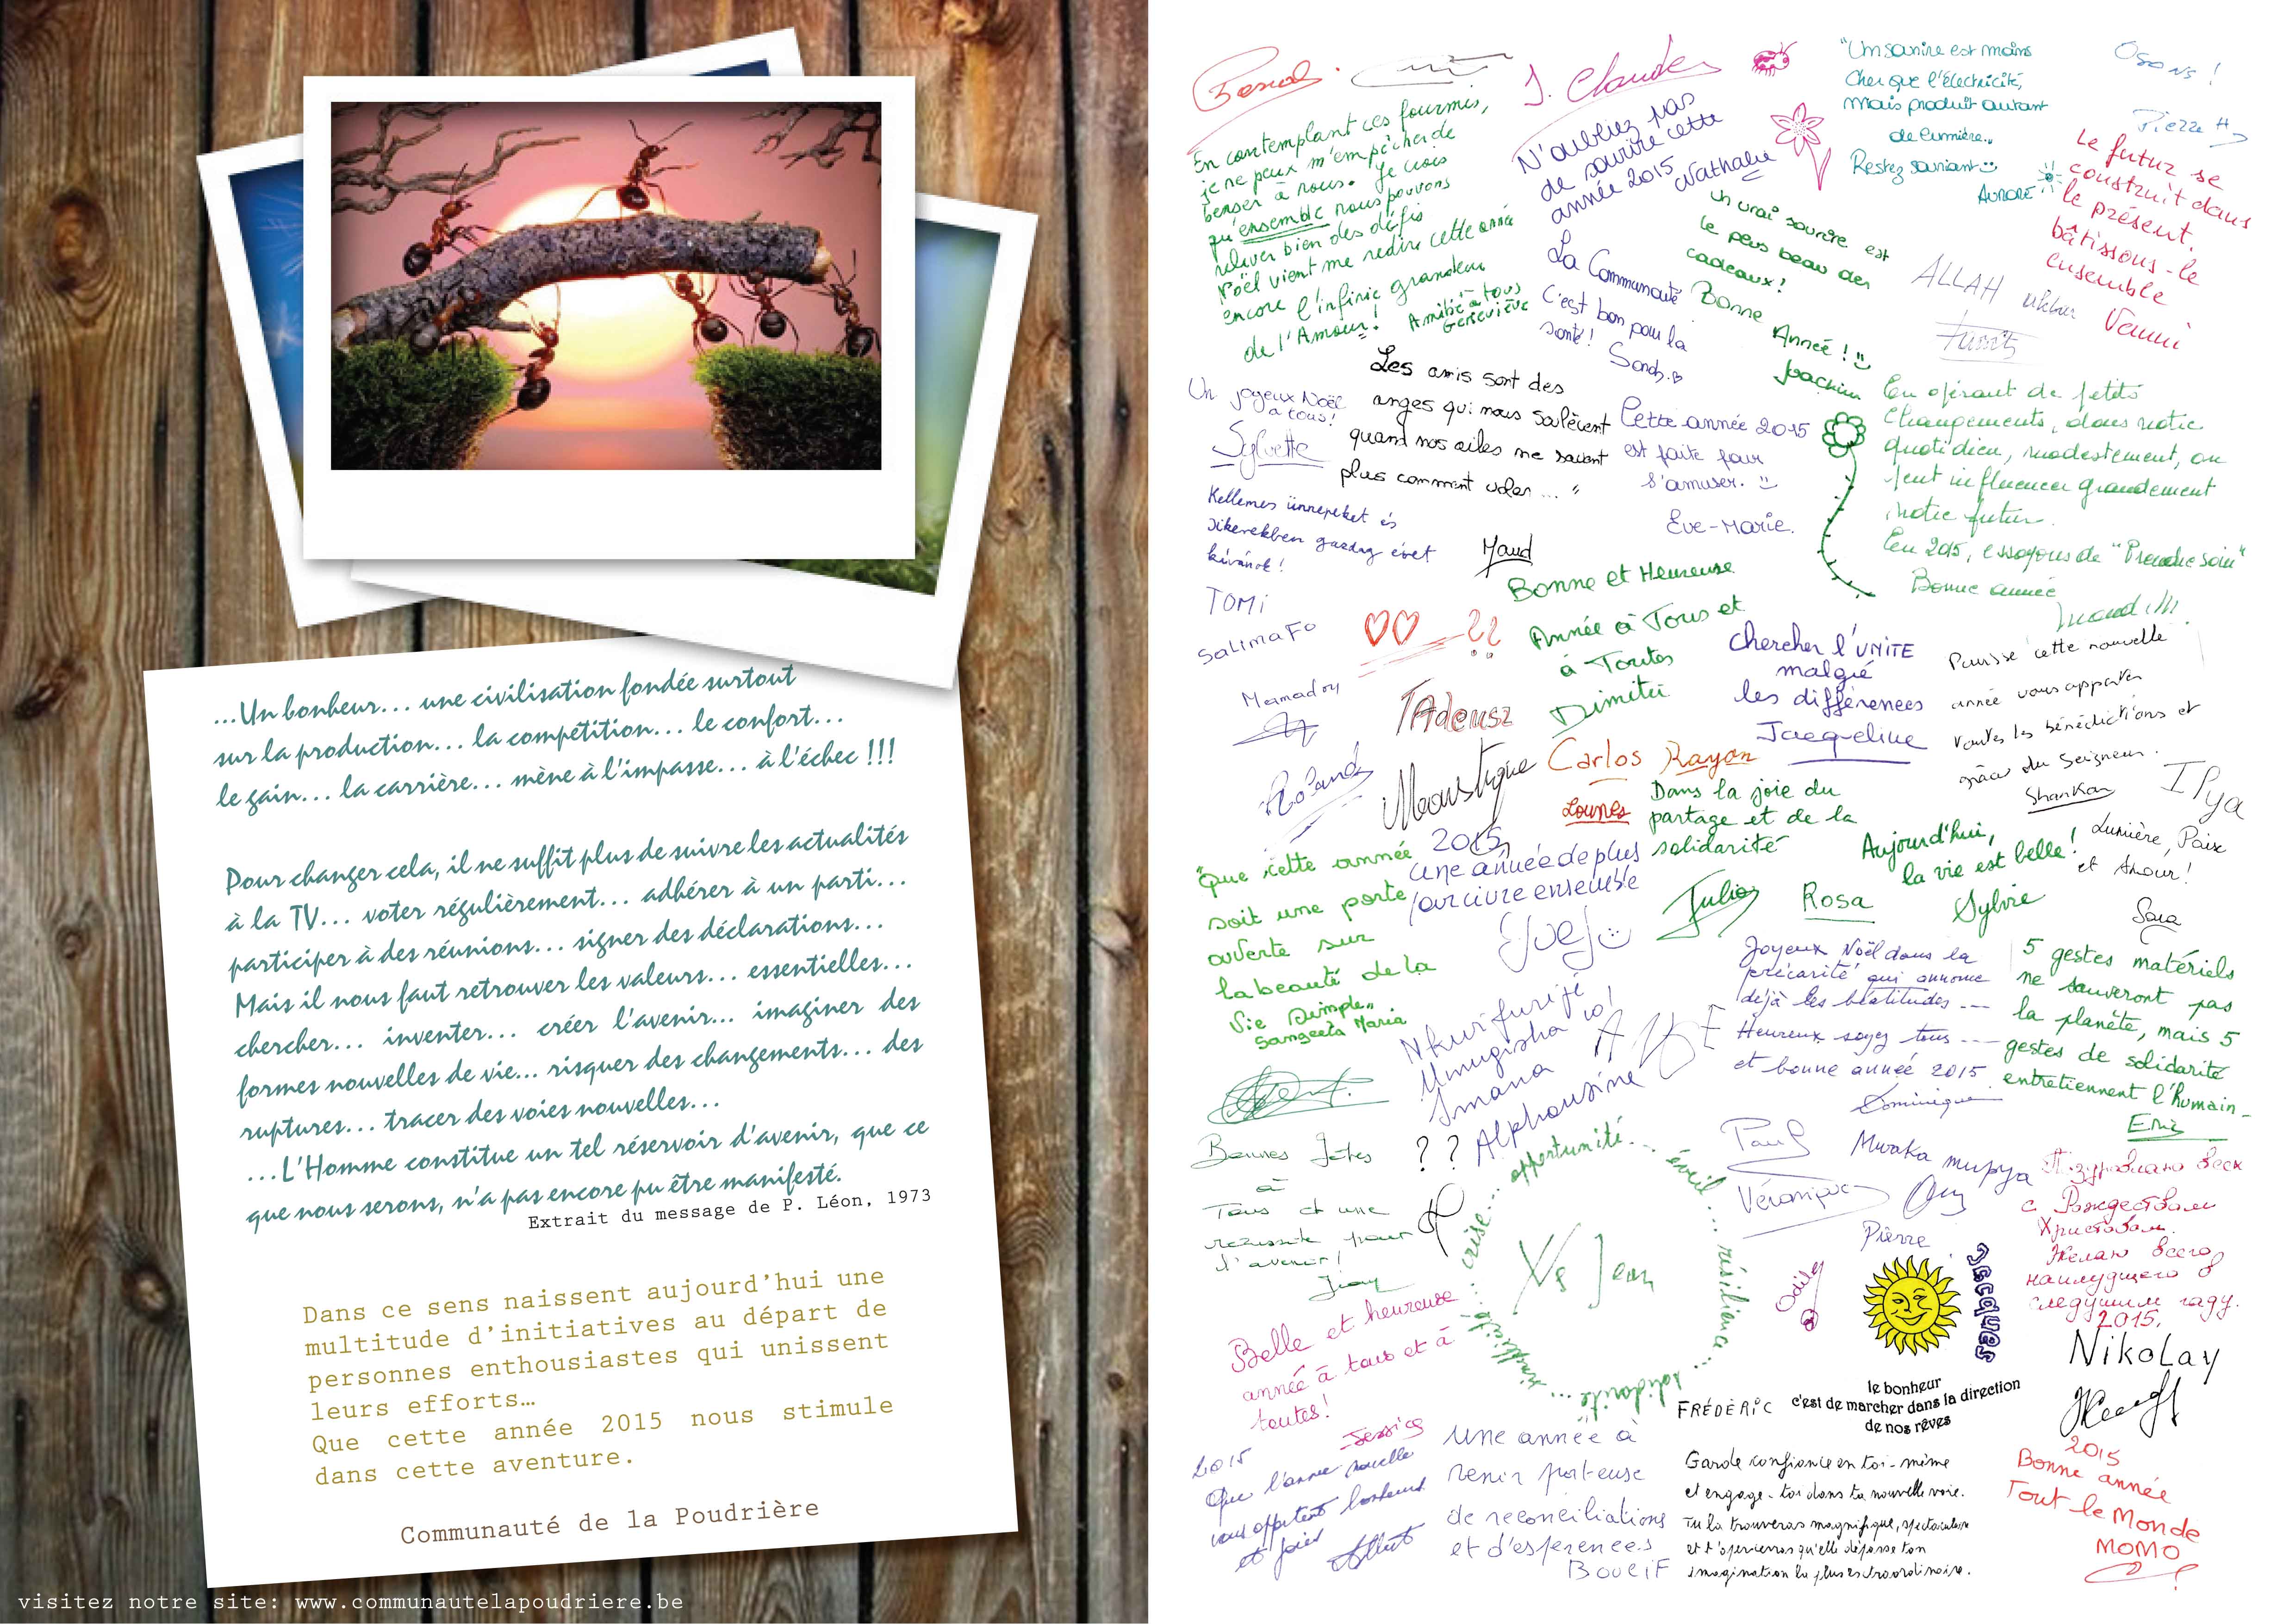 ...Un bonheur... une civilisation fondée surtout
sur la production... la compétition... le confort...
le gain... la carrière... mène à l'impasse... à l'échec !!!
Pour changer cela, il ne suffit plus de suivre les actualités
à la TV... voter régulièrement... adhérer à un parti...
participer à des réunions... signer des déclarations...
Mais il nous faut retrouver les valeurs... essentielles...
chercher... inventer... créer l'avenir... imaginer des
formes nouvelles de vie... risquer des changements... des
ruptures... tracer des voies nouvelles...
...L'Homme constitue un tel réservoir d'avenir, que ce
que nous serons, n'a pas encore pu être manifesté.
Extrait du message de P. Léon, 1973
Dans ce sens naissent aujourd'hui une
multitude d'initiatives au départ de
personnes enthousiastes qui unissent
leurs efforts…
Que cette année 2015 nous stimule
dans cette aventure.
Communauté de la Poudrière
visitez notre site: www.communautelapoudriere.be
En contemplant ces fourmis,
je ne peux m'empêcher de
penser à nous. Je crois
qu'ensemble nous pouvons
relever bien des défis
Noël vient me redire cette année
encore l'infinie grandeur
de l'Amour!
Amitié à tous
Geneviève
J. Claude
N'oubliez pas
de sourire cette
année 2015
Nathalie
"Un sourire est moins
cher que l'électricité,
mais produit autant
de lumière"
Restez souriant
Aurore
Osons !
Pierre H
Le futur se
construit dans
le présent.
bâtissons-le
ensemble
Un vrai sourire est
le plus beau des
cadeaux!
Bonne
Année !
Joachim
La Communauté
C'est bon pour la
santé!
ALLAH
Un joyeux Noël
à tous!
Sylvette
Les amis sont des
anges qui nous soulèvent
quand nos ailes ne savent
plus comment voler..."
Maud
Cette année 2015
est faite pour
s'amuser.
Eve-Marie.
En opérant de petits
changements, dans notre
quotidien, modestement, on
peut influencer grandement
notre futur.
En 2015, essayons de "Prendre soin"
Bonne année
Kellemes ünnepeket és
sikerekben gazdag évet
kívánok!
TOMi
SalimaFo
Mamadou
TAdeusz
Bonne et Heureuse
Année à Tous et
à Toutes
Dimitri
Chercher l'UNITE
malgré
les différences
Jacqueline
Puisse cette nouvelle
année vous apporter
toutes les bénédictions et
grâce du Seigneur.
Shankar
Roland
Moustique
Carlos Rayon
Lounes
Dans la joie du
partage et de la
solidarité
Julio
Rosa
Aujourd'hui,
la vie est belle!
Sylvie
Ilya
Lumière, Paix
et Amour!
Sara
"Que cette année
soit une porte
ouverte sur
la beauté de la
vie simple"
Sangeeta Maria
2015
une année de plus
pour vivre ensemble
Nkurifurije
Umugisha
Imana
Alphonsine
Joyeux Noël dans la
précarité qui annonce
déjà les béatitudes ---
Heureux soyez tous ---
et bonne année 2015
Dominique
5 gestes matériels
ne sauveront pas
la planète, mais 5
gestes de solidarité
entretiennent l'humain-
Bonnes fêtes
à
Tous et une
réussite pour
l'avenir!
??
opportunité... éveil... résilience... solidarité... simplicité... crise...
Jean
Paul
Véronique
Mwaka
Pierre
Odile
Jacques
Поздравляю всех
с Рождеством
Христовым.
Желаю всего
наилучшего в
следущем году.
2015.
NikoLay
Belle et heureuse
année à tous et à
toutes!
Jessica
FRÉDÉRiC
le bonheur
c'est de marcher dans la direction
de nos rêves
2015
Que l'année nouvelle
vous apportent bonheur
et joies
Une année à
venir porteuse
de reconciliations
et d'esperences
BOUCIF
Garde confiance en toi-même
et engage-toi dans ta nouvelle voie.
Tu la trouveras magnifique, spectaculaire
et t'apercevras qu'elle dépasse ton
imagination la plus extraordinaire.
2015
Bonne année
Tout le Monde
MOMO